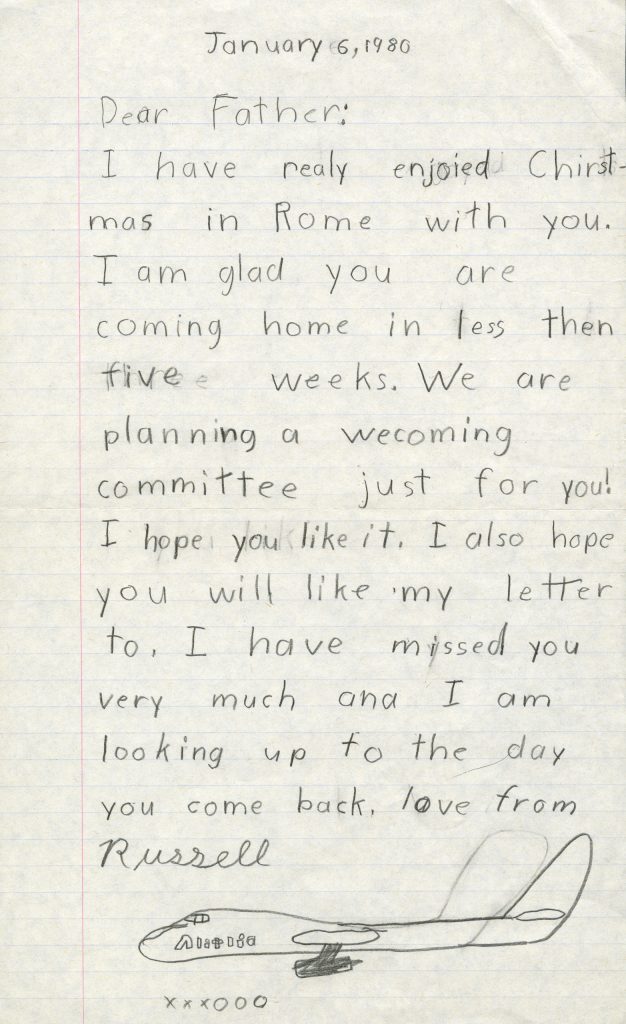 January 6, 1980
Dear Father:
I have realy enjoied Chirst-
mas in Rome with you.
I am glad you are
coming home in less then
five weeks. We are
planning a wecoming
committee just for you!
I hope you like it. I also hope
you will like my letter
to. I have missed you
very much and I am
looking up to the day
you come back. love from
Russell
xxxooo